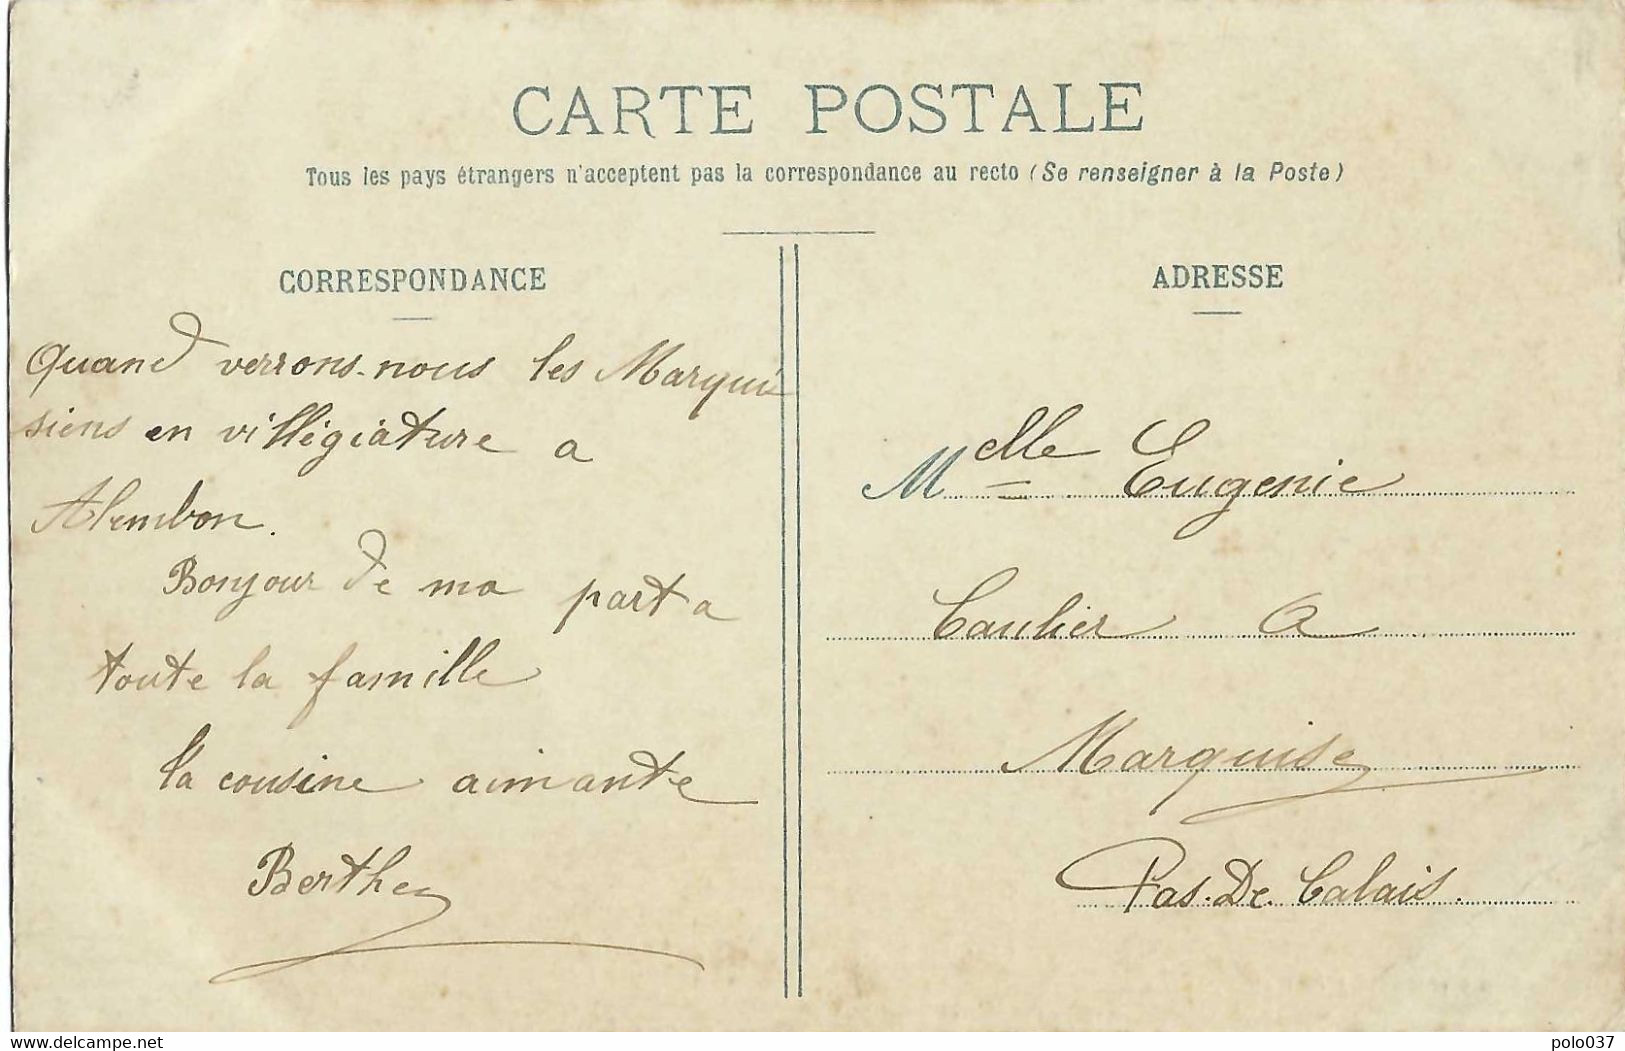 CARTE POSTALE
Tous les pays étrangers n'acceptent pas la correspondance au recto (Se renseigner à la Poste)
CORRESPONDANCE
Quand verrons-nous les Marqui
siens en villégiature a
Alembon.
Bonjour de ma part a
toute la famille
la cousine aimante
Berthe
ADRESSE
Melle Eugenie
Caulier a
Marquise
Pas-De-Calais.
www.delcampe.net
polo037